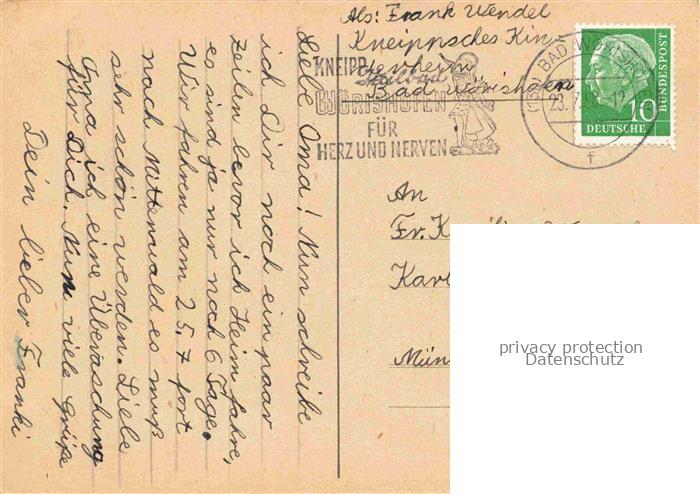 Abs: Frank Wendel
Kneippsches Kin-
derheim
Bad Wörishofen
KNEIPP
Heilbad
WÖRISHOFEN
FÜR
HERZ UND NERVEN
BAD WÖRISHO
23.7.58
f
10
DEUTSCHE
BUNDESPOST
Liebe Oma! Nun schreibe
ich Dir noch ein paar
Zeilen bevor ich Heim fahre,
es sind ja nur noch 6 Tage.
Wir fahren am 25.7 fort
nach Mittenwald es muß
sehr schön werden. Liebe
Oma ich eine Überaschung
für Dich. Nun viele Grüße
Dein lieber Franki
An
Fr.
Kar
Mün
privacy protection
Datenschutz